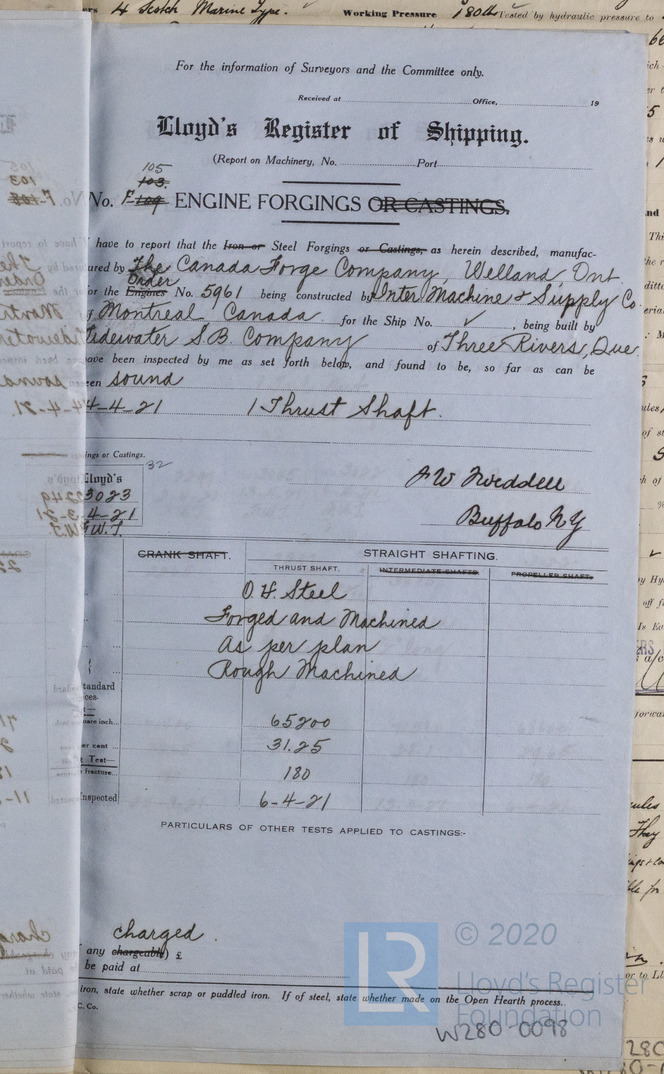 4 Scotch Marine Type. Working Pressure 180 lb Tested by hydraulic pressure to
For the information of Surveyors and the Committee only.
Received at Office, 19
Lloyd's Register of Shipping.
(Report on Machinery, No. Port
105
103.
No. F-109 ENGINE FORGINGS OR CASTINGS.
I have to report that the Iron or Steel Forgings or Castings, as herein described, manufac-
tured by The Canada Forge Company, Welland, Ont.
Order
for the Engines No. 5961 being constructed by Inter Machine & Supply Co.
Montreal Canada for the Ship No. ✓, being built by
Tidewater S.B. Company of Three Rivers, Que
have been inspected by me as set forth below, and found to be, so far as can be
seen sound
4-4-21 1 Thrust Shaft.
ings or Castings.
32
Lloyd's
3023
4-21
W.T.
Buffalo NY
CRANK SHAFT. STRAIGHT SHAFTING.
THRUST SHAFT. INTERMEDIATE SHAFTS. PROPELLER SHAFT.
O.H. Steel
Forged and Machined
As per plan
Rough Machined
tandard
ces.
uare inch... 65200
er cent ... 31.25
Test—
fracture... 180
nspected 6-4-21
PARTICULARS OF OTHER TESTS APPLIED TO CASTINGS:-
charged
any chargeable) £
be paid at
iron, state whether scrap or puddled iron. If of steel, state whether made on the Open Hearth process.
C. Co.
LR © 2020
Lloyd's Register
Foundation
W280-0098